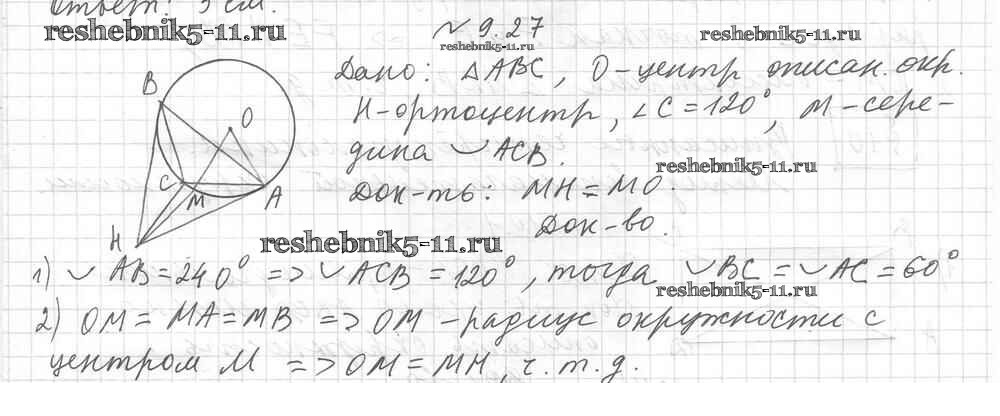 Ответ: 3 см.
reshebnik5-11.ru
№ 9.27
reshebnik5-11.ru
reshebnik5-11.ru
Дано: △ABC, O-центр описан. окр.
H-ортоцентр, ∠C=120°, M-сере-
дина ◡ACB.
reshebnik5-11.ru
Док-ть: MH=MO.
Док-во.
B
O
C
M
A
H
reshebnik5-11.ru
1) ◡AB=240° => ◡ACB=120°, тогда ◡BC=◡AC=60°
reshebnik5-11.ru
2) OM=MA=MB => OM-радиус окружности с
центром M => OM=MH, ч.т.д.